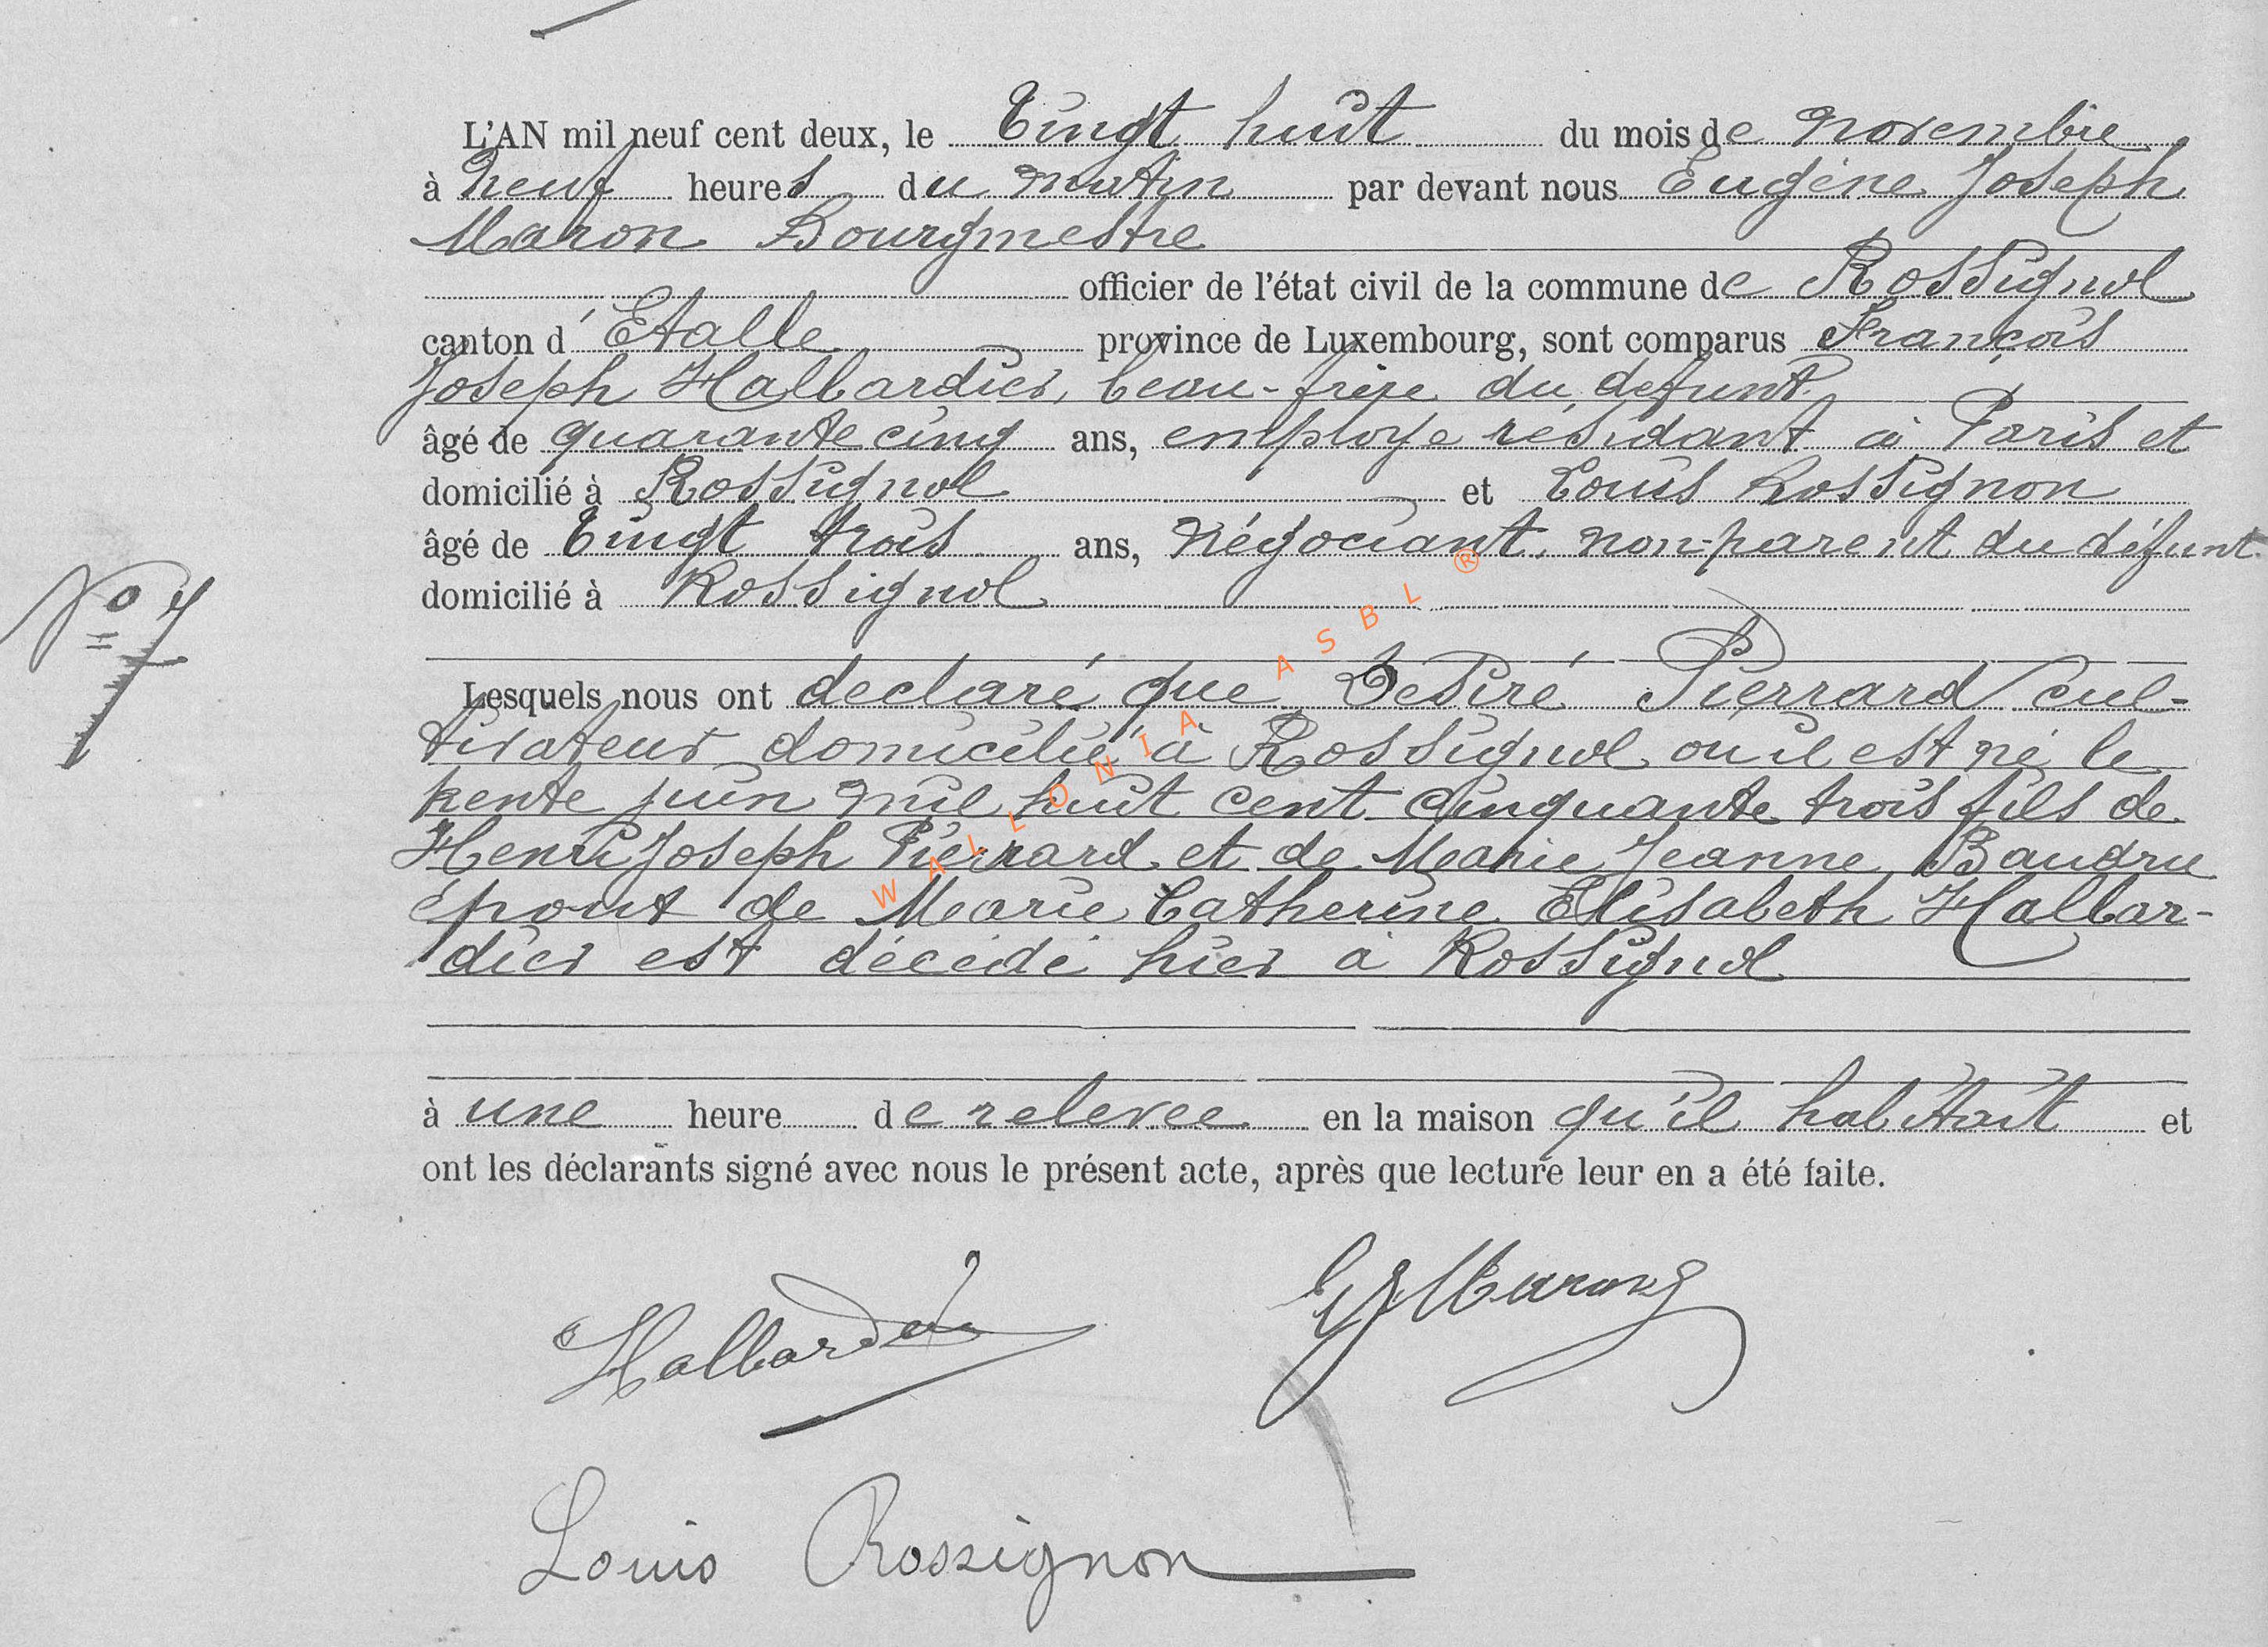 L'AN mil neuf cent deux, le Vingt huit du mois de novembre
à neuf heures du matin par devant nous Eugène Joseph
Maron Bourgmestre
officier de l'état civil de la commune de Rossignol
canton d'Etalle province de Luxembourg, sont comparus François
Joseph Hallardier, beau-frère du défunt
âgé de quarante cinq ans, employé résidant à Paris et
domicilié à Rossignol et Louis Rossignon
âgé de Vingt trois ans, négociant, non-parent du défunt
domicilié à Rossignol
N° 7
Lesquels nous ont declaré que Désiré Pierrard cul-
tivateur domicilié à Rossignol où il est né le
trente juin mil huit cent cinquante trois fils de
Henri Joseph Pierrard et de Marie Jeanne Baudru
époux de Marie Catherine Elisabeth Hallar-
dier est décédé hier à Rossignol
à une heure de relevee en la maison qu'il habitait et
ont les déclarants signé avec nous le présent acte, après que lecture leur en a été faite.
Hallardier EJMaron
Louis Rossignon
WALLONIA ASBL ®